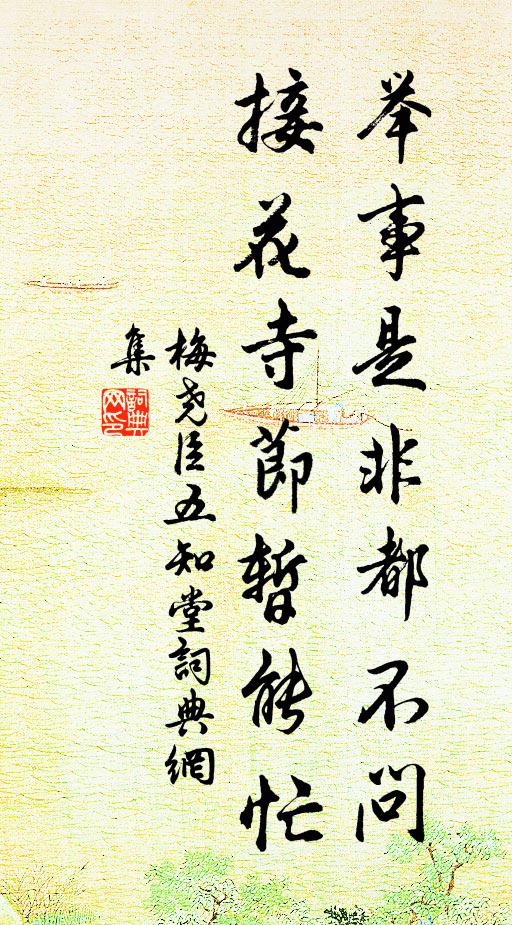 举事是非都不问
接花寺节暂能忙
梅尧臣五知堂詞典網
集
詞典网印